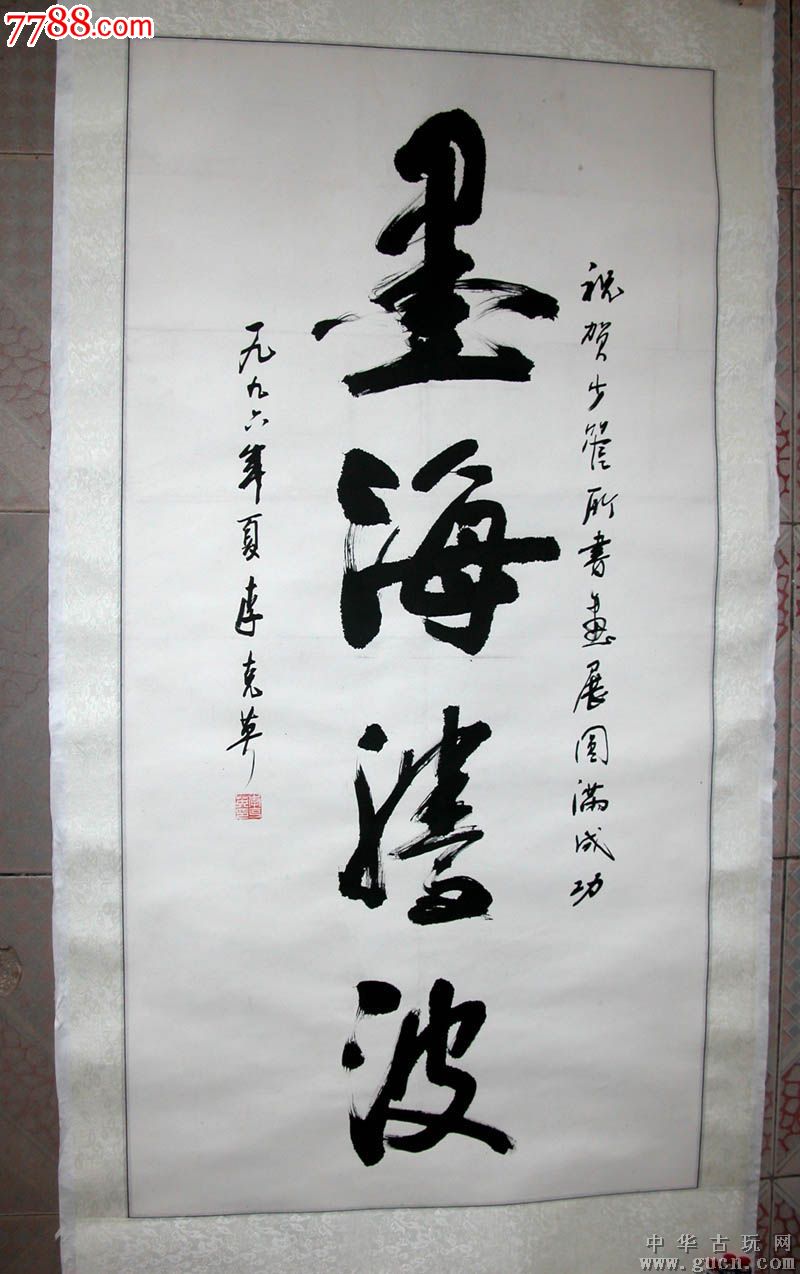 7788.com
祝贺少管所书画展圆满成功
墨海腾波
一九九六年夏李克英
中华古玩网
www.gucn.com